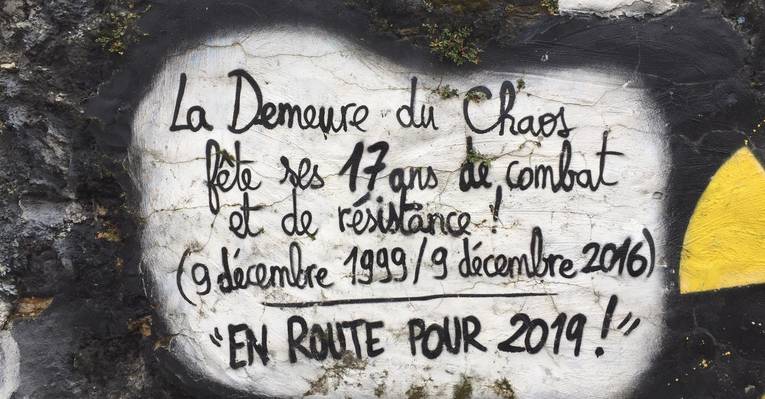 La Demeure du Chaos
fête ses 17 ans de combat
et de résistance !
(9 décembre 1999/9 décembre 2016)
"EN ROUTE POUR 2019 !"